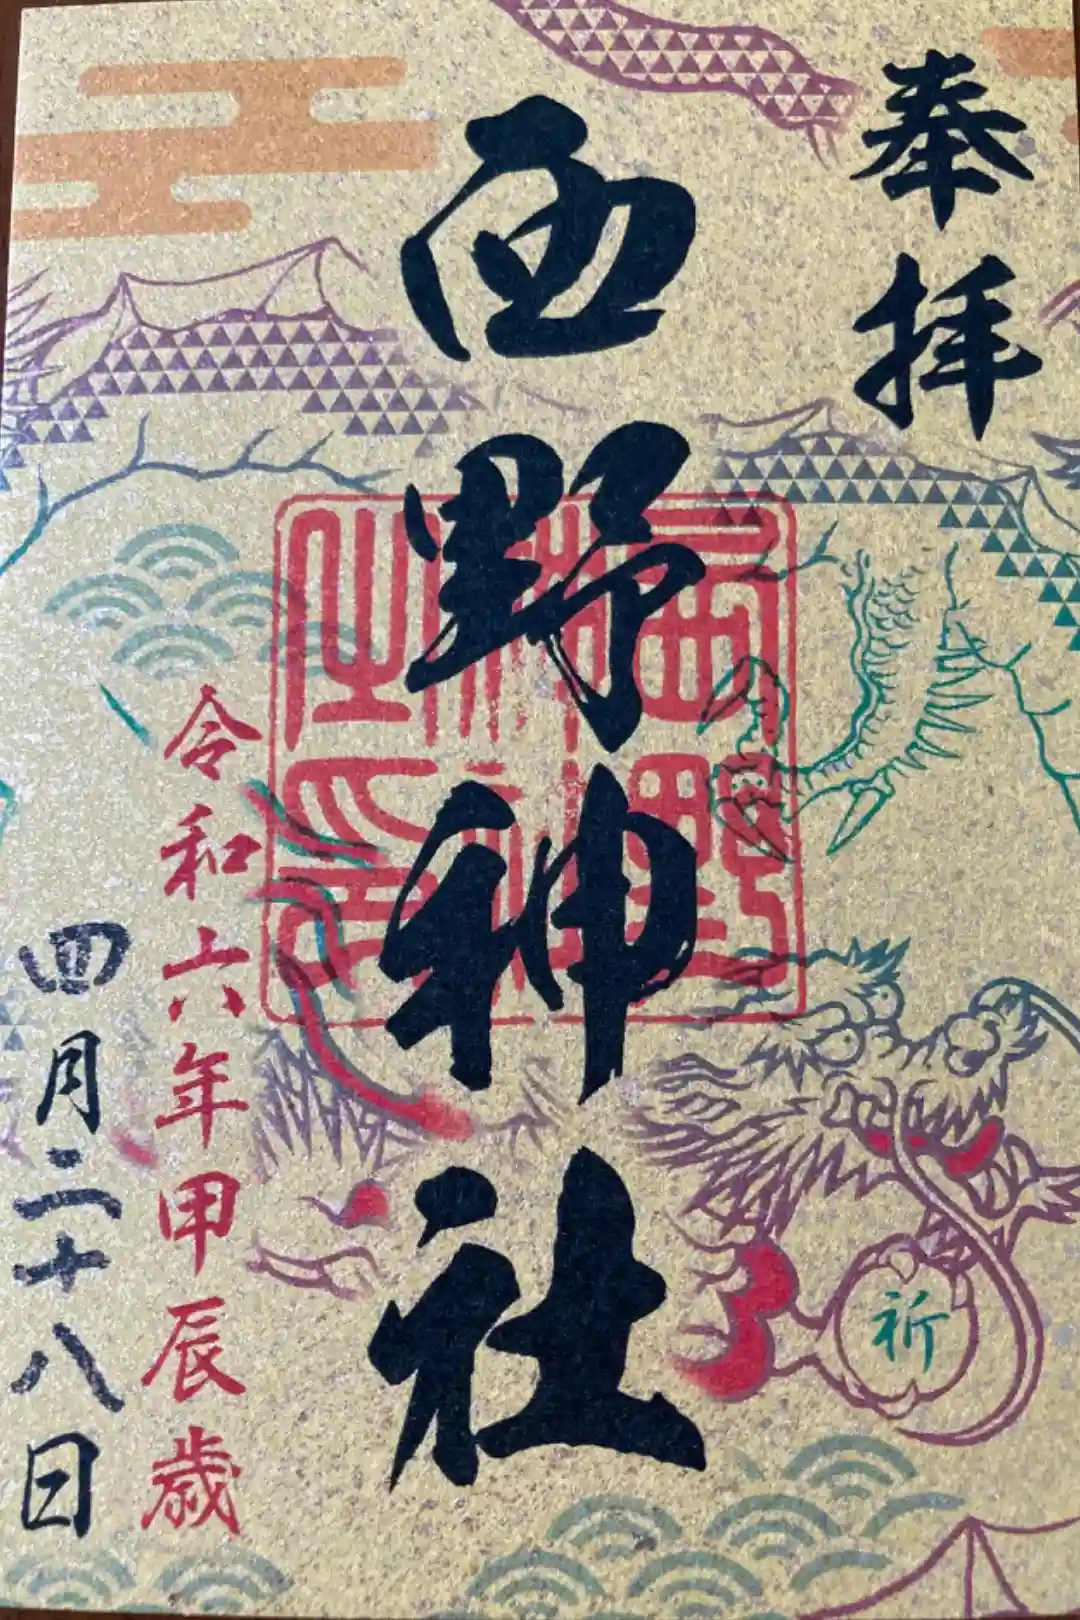 奉拝
西野神社
西野神社之印
令和六年甲辰歳
四月二十八日
祈